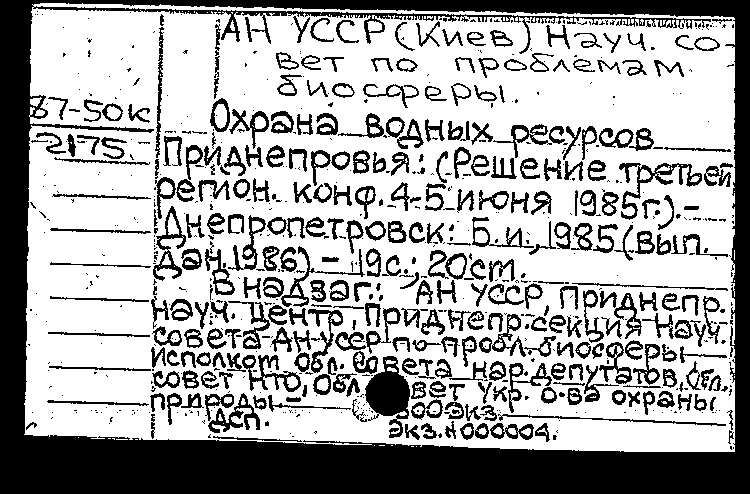 АН УССР (Киев) Науч. со-
вет по проблемам
биосферы.
87-50к
2175.
Охрана водных ресурсов
Приднепровья: (Решение третьей
регион. конф. 4-5 июня 1985г.).-
Днепропетровск: Б.и., 1985 (вып.
дан. 1986).- 19с.; 20ст.
В надзаг.: АН УССР, Приднепр.
науч. центр, Приднепр. секция Науч.
совета АН УССР по пробл. биосферы
исполком обл. Совета нар. депутатов, Обл.
совет НТО, Обл. вет Укр. о-ва охраны
природы.- 300экз.
ДСП. Экз.N000004.